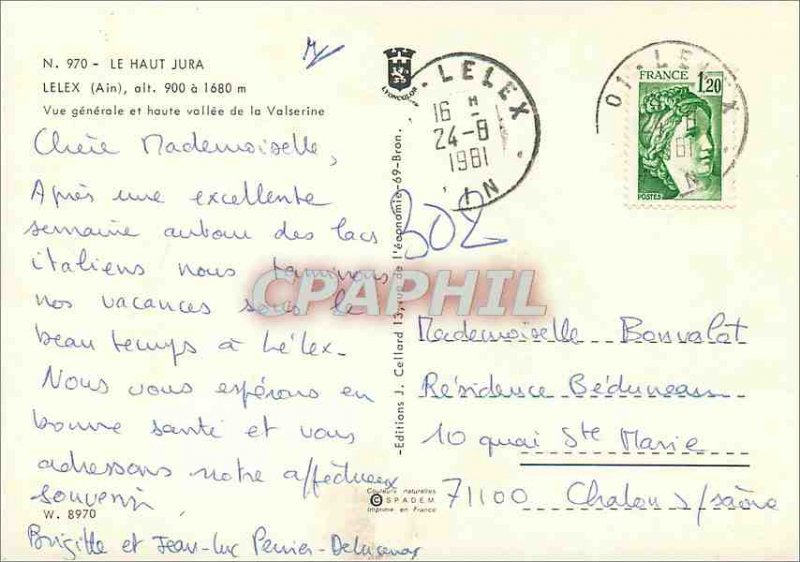 N. 970 - LE HAUT JURA
LELEX (Ain), alt. 900 à 1680 m
Vue générale et haute vallée de la Valserine
Chère Mademoiselle,
Après une excellente
semaine autour des lacs
italiens nous terminons
nos vacances sous le
beau temps à Lélex.
Nous vous espérons en
bonne santé et vous
adressons notre affectueux
souvenir
W. 8970
Brigitte et Jean-Luc
LYONCOLOR
-Editions J. Cellard 13, rue de l'économie-69-Bron.
Couleurs naturelles
© SPADEM
Imprimé en France
302
CPAPHIL
01-LELEX
16 H
24-8
1981
AIN
01-LELEX
FRANCE
1,20
POSTES
Mademoiselle Bonvalot
Résidence
10 quai Ste Marie
71100 Chalon s/saône